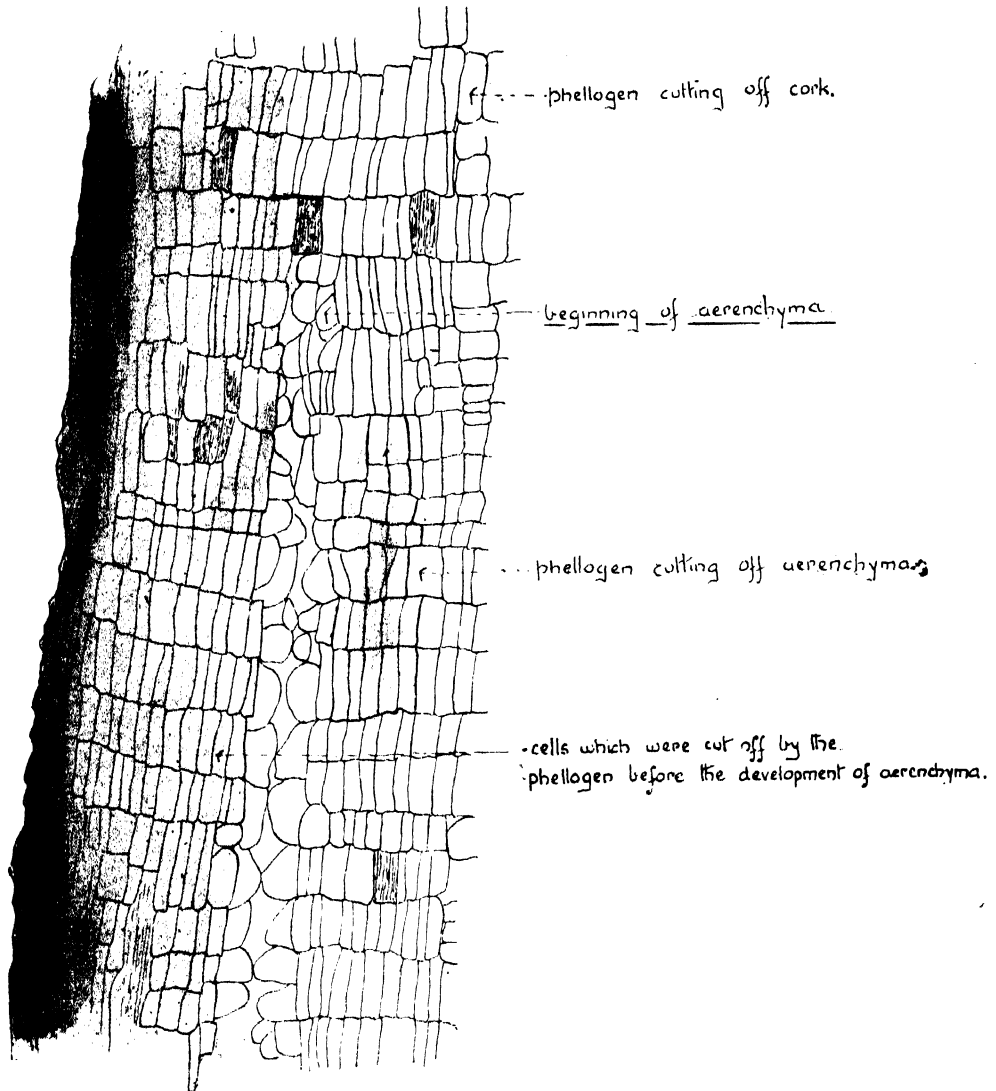 phellogen cutting off cork.
beginning of aerenchyma
phellogen cutting off aerenchyma
cells which were cut off by the
phellogen before the development of aerenchyma.